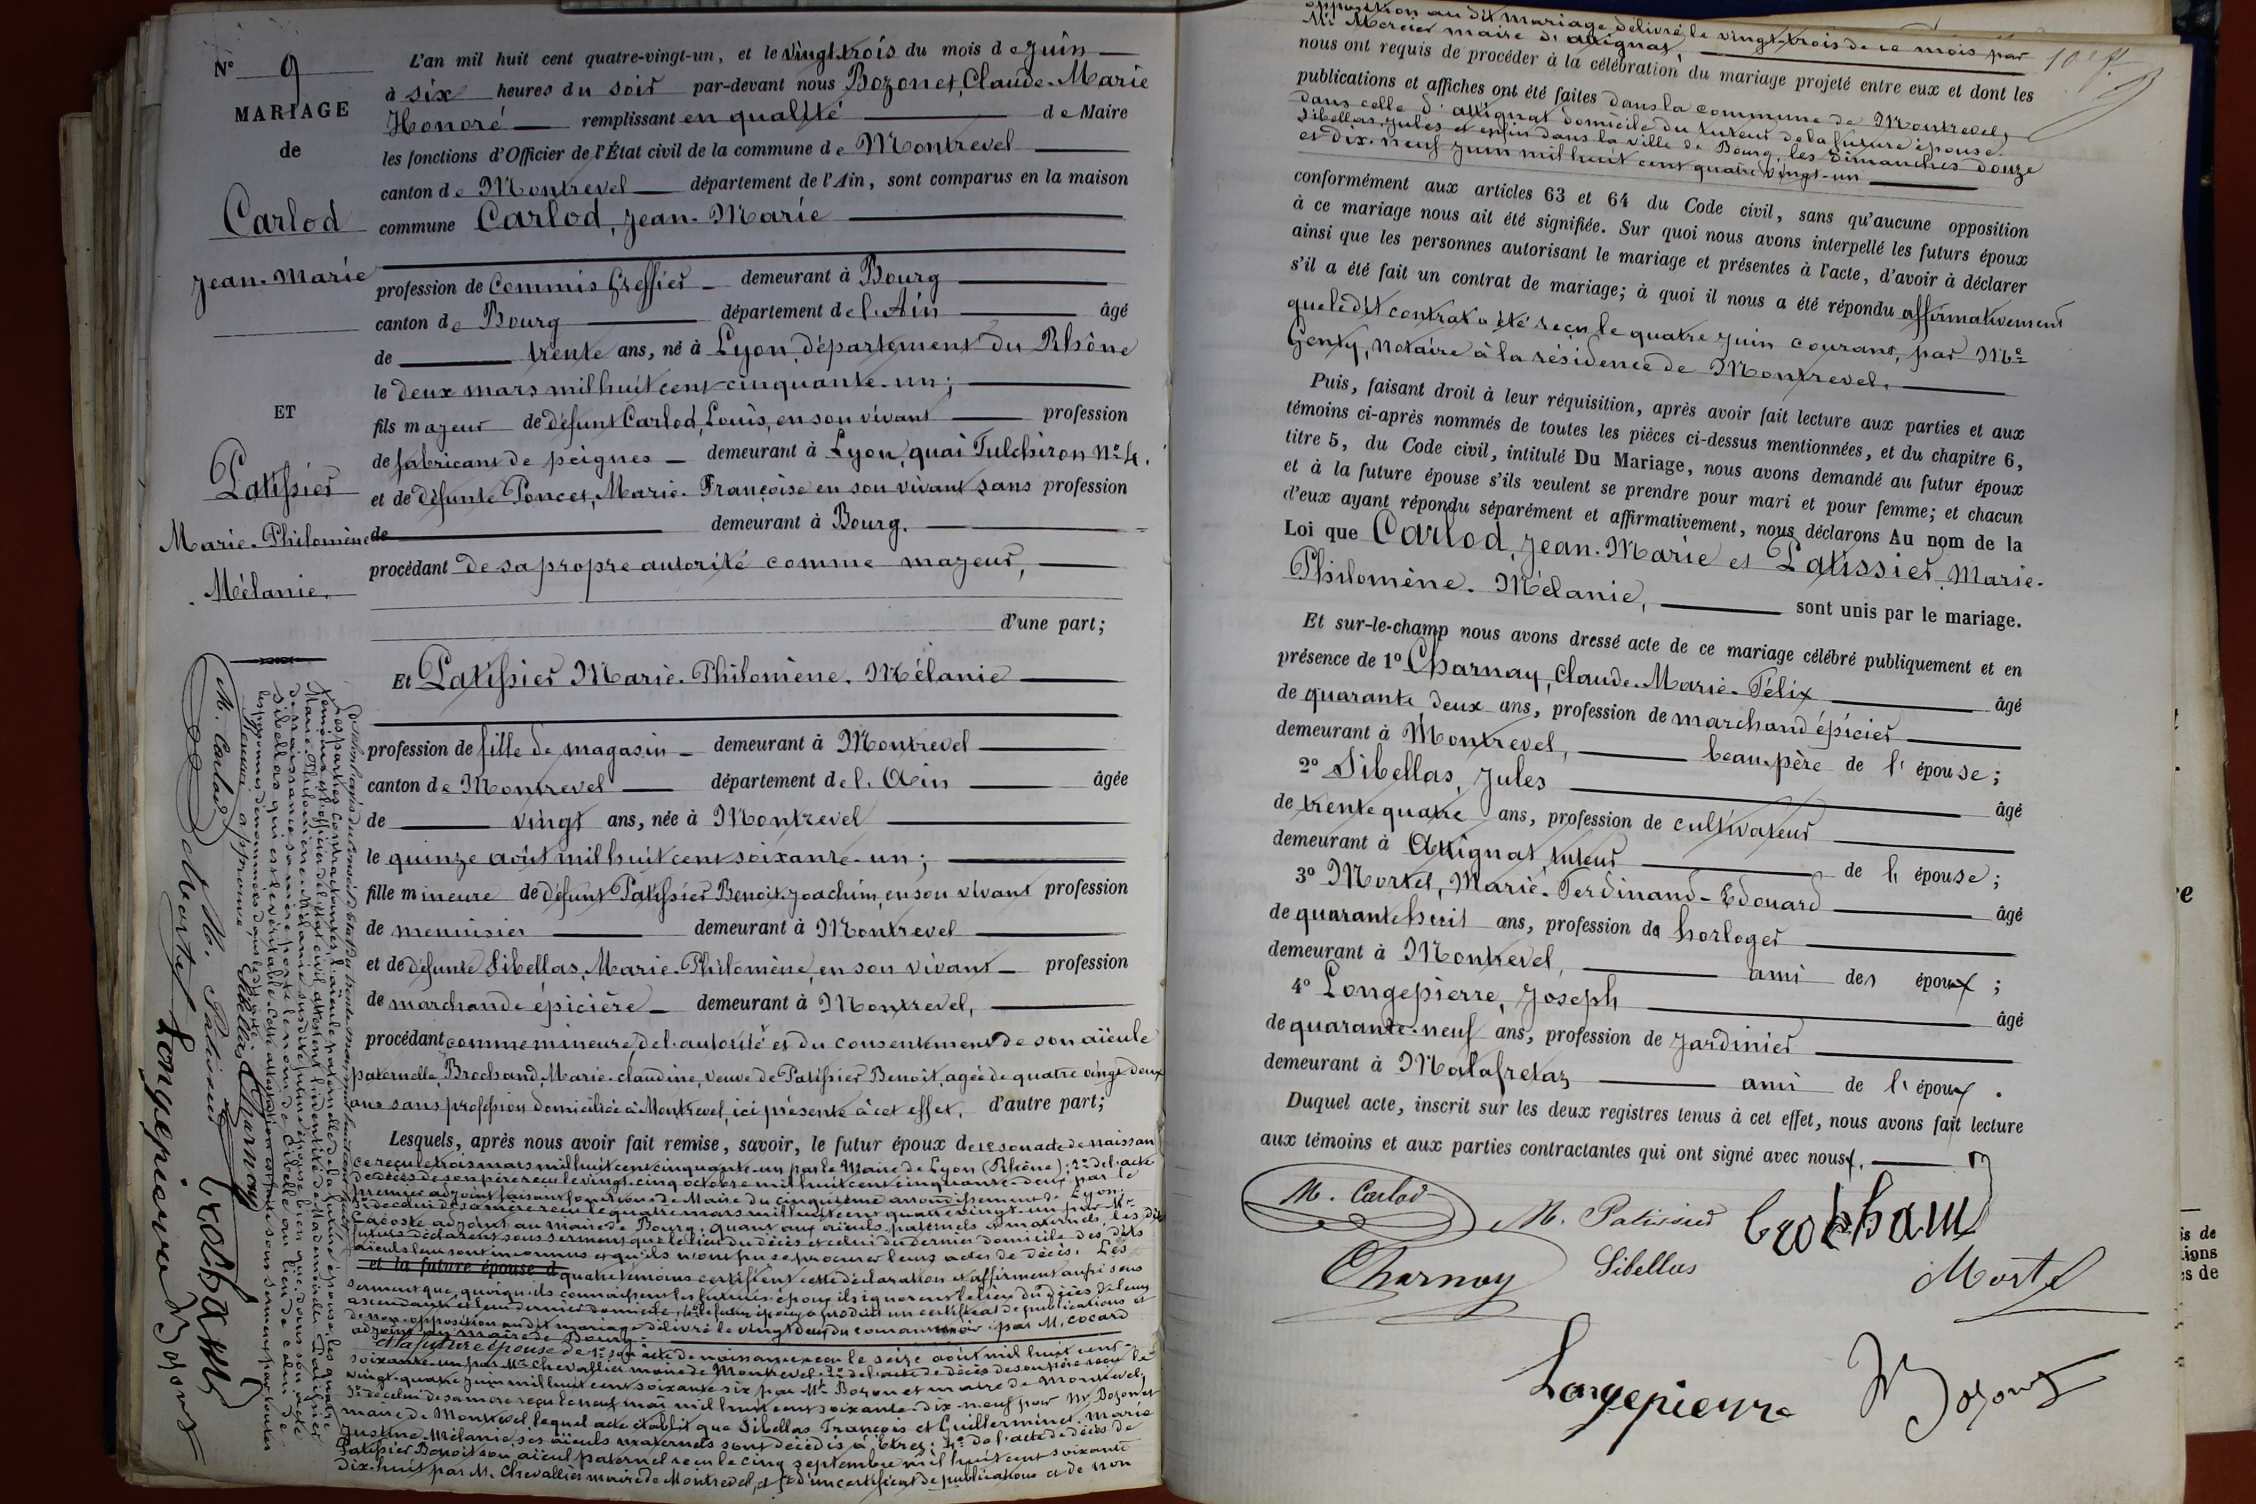 N° 9
MARIAGE
de
Carlod
Jean-Marie
ET
Patissier
Marie-Philomène
Mélanie.
L'an mil huit cent quatre-vingt-un, et le vingt trois du mois de Juin
à six heures du soir par-devant nous Bozonet, Claude-Marie
Honoré remplissant en qualité de Maire
les fonctions d'Officier de l'État civil de la commune de Montrevel
canton de Montrevel département de l'Ain, sont comparus en la maison
commune Carlod, Jean-Marie
profession de Commis Greffier demeurant à Bourg
canton de Bourg département de l'Ain âgé
de trente ans, né à Lyon, département du Rhône
le deux mars mil huit cent cinquante-un;
fils majeur de défunt Carlod, Louis, en son vivant profession
de fabricant de peignes demeurant à Lyon, quai Fulchiron N° 4.
et de défunte Poncet, Marie-Françoise en son vivant sans profession
de demeurant à Bourg.
procédant de sa propre autorité comme majeur,
d'une part;
Et Patissier Marie-Philomène-Mélanie
profession de fille de magasin demeurant à Montrevel
canton de Montrevel département de l'Ain âgée
de vingt ans, née à Montrevel
le quinze août mil huit cent soixante-un;
fille mineure de défunt Patissier Benoit Joachim, en son vivant profession
de menuisier demeurant à Montrevel
et de défunte Sibellas, Marie-Philomène, en son vivant profession
de marchande épicière demeurant à Montrevel,
procédant comme mineure, de l'autorité et du consentement de son aïeule
paternelle, Brochand, Marie-Claudine, veuve de Patissier Benoît, agée de quatre vingt deux
ans sans profession domiciliée à Montrevel, ici présente à cet effet, d'autre part;
Lesquels, après nous avoir fait remise, savoir, le futur époux de 1° son acte de naissan
ce reçu le trois mars mil huit cent cinquante-un par le Maire de Lyon (Rhône); 2° de l'acte
de décès de son père reçu le vingt-cinq octobre mil huit cent cinquante-deux par le
premier adjoint faisant fonctions de Maire du cinquième arrondissement de Lyon;
3° de celui de sa mère reçu le quatre mars mil huit cent quatre vingt-un par Mr
Lacoste adjoint au maire de Bourg, quant aux aïeuls paternels et maternels, les dits
futurs déclarent sous serment que le lieu du décès et celui du dernier domicile des dits
aïeuls leur sont inconnus et qu'ils n'ont pu se procurer leurs actes de décès. Les
et la future épouse d quatre témoins certifient cette déclaration et affirment aussi sous
serment que, quoiqu'ils connaissent les futurs époux ils ignorent le lieu du décès de leurs
ascendants et leur dernier domicile, 4° le futur époux a produit un certificat de publications et
de non-opposition au dit mariage délivré le vingt deux du courant par M. Cocard
adjoint au maire de Bourg.
Et la future épouse de 1° son acte de naissance reçu le seize août mil huit cent-
soixante-un par Mr Chevallier maire de Montrevel; 2° de l'acte de décès de son père reçu le
vingt-quatre Juin mil huit cent soixante six par Mr Bozonet maire de Montrevel;
3° de celui de sa mère reçu le neuf mai mil huit cent soixante-dix-neuf par Mr Bozonet
maire de Montrevel lequel acte établit que Sibellas François et Guillerminet, Marie
Justine-Mélanie, ses aïeuls maternels sont décédés à Etrez; 4° de l'acte de décès de
Patissier Benoit son aïeul paternel reçu le cinq septembre mil huit cent soixante
dix-huit par M. Chevallier maire de Montrevel, et 5° d'un certificat de publications et de non
Les parties contractantes, l'aïeule paternelle de la future épouse, les quatre
témoins et l'officier de l'état civil attestent l'identité de Mademoiselle Patissier
Marie-Philomène-Mélanie susdite future épouse bien que dans son acte
de naissance sa mère porte le nom de Cibelle au lieu de celui de
Sibellas qui est le véritable. Cette attestation est faite sous serment par toutes
les personnes dénommées dans le dit acte.
Renvoi approuvé
M. Carlod M. Patissier Sibellas Charnay brochand
Mortel Longepierre Bozonet
opposition au dit mariage délivré le vingt-trois de ce mois par
Mr Mercier maire d'Attignat
nous ont requis de procéder à la célébration du mariage projeté entre eux et dont les
publications et affiches ont été faites dans la commune de Montrevel,
dans celle d'Attignat domicile du tuteur de la future épouse
Sibellas, Jules et enfin dans la ville de Bourg, les Dimanches douze
et dix-neuf Juin mil huit cent quatre vingt-un
conformément aux articles 63 et 64 du Code civil, sans qu'aucune opposition
à ce mariage nous ait été signifiée. Sur quoi nous avons interpellé les futurs époux
ainsi que les personnes autorisant le mariage et présentes à l'acte, d'avoir à déclarer
s'il a été fait un contrat de mariage; à quoi il nous a été répondu affirmativement
que le dit contrat a été reçu le quatre Juin courant, par Me
Genty, Notaire à la résidence de Montrevel.
Puis, faisant droit à leur réquisition, après avoir fait lecture aux parties et aux
témoins ci-après nommés de toutes les pièces ci-dessus mentionnées, et du chapitre 6,
titre 5, du Code civil, intitulé Du Mariage, nous avons demandé au futur époux
et à la future épouse s'ils veulent se prendre pour mari et pour femme; et chacun
d'eux ayant répondu séparément et affirmativement, nous déclarons Au nom de la
Loi que Carlod, Jean-Marie et Patissier Marie-
Philomène-Mélanie, sont unis par le mariage.
Et sur-le-champ nous avons dressé acte de ce mariage célébré publiquement et en
présence de 1° Charnay, Claude-Marie-Félix âgé
de quarante deux ans, profession de marchand épicier
demeurant à Montrevel, beau-père de l'épouse;
2° Sibellas, Jules âgé
de trente quatre ans, profession de cultivateur
demeurant à Attignat tuteur de l'épouse;
3° Mortel, Marie-Ferdinand-Edouard âgé
de quarante huit ans, profession de horloger
demeurant à Montrevel, ami des époux;
4° Longepierre, Joseph âgé
de quarante-neuf ans, profession de Jardinier
demeurant à Malafretaz ami de l'époux.
Duquel acte, inscrit sur les deux registres tenus à cet effet, nous avons fait lecture
aux témoins et aux parties contractantes qui ont signé avec nous.
M. Carlod M. Patissier brochand
Charnay Sibellas Mortel
Longepierre Bozonet